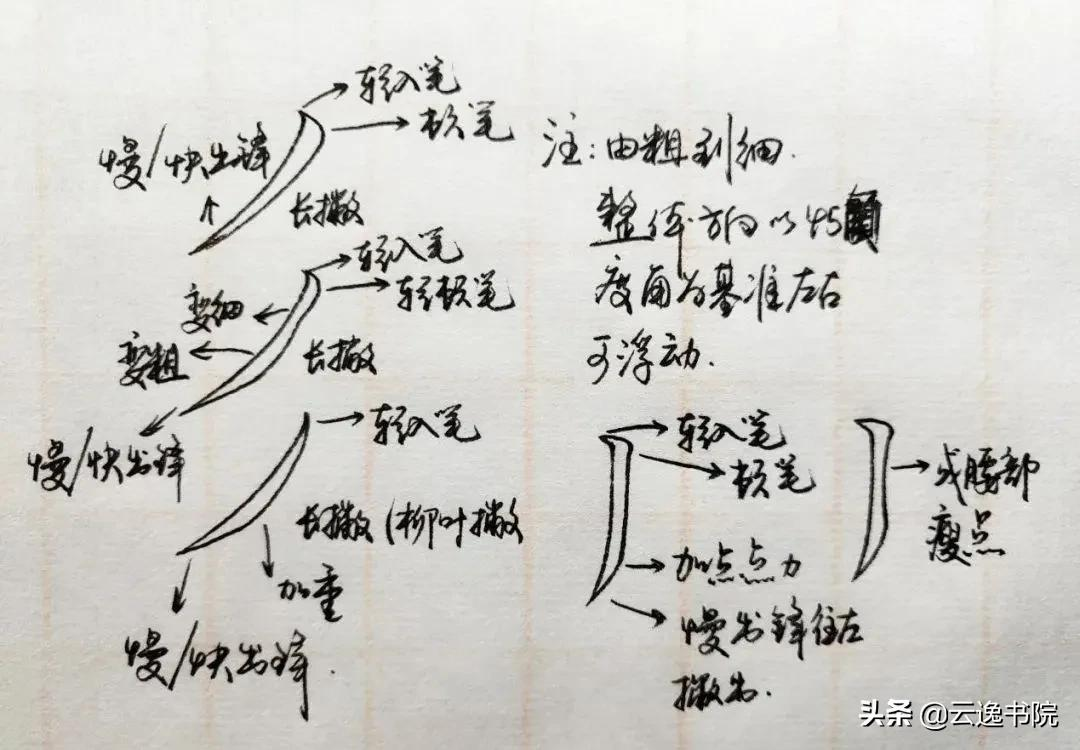 轻入笔
顿笔
慢/快出锋
长撇
轻入笔
轻顿笔
变细
变粗
长撇
慢/快出锋
轻入笔
长撇(柳叶撇
加重
慢/快出锋.
注:由粗到细.
整体方向以45
度角为基准左右
可浮动.
轻入笔
顿笔
加点点力
慢出锋往左
撇出.
或腰部
瘦点
头条 @云逸书院